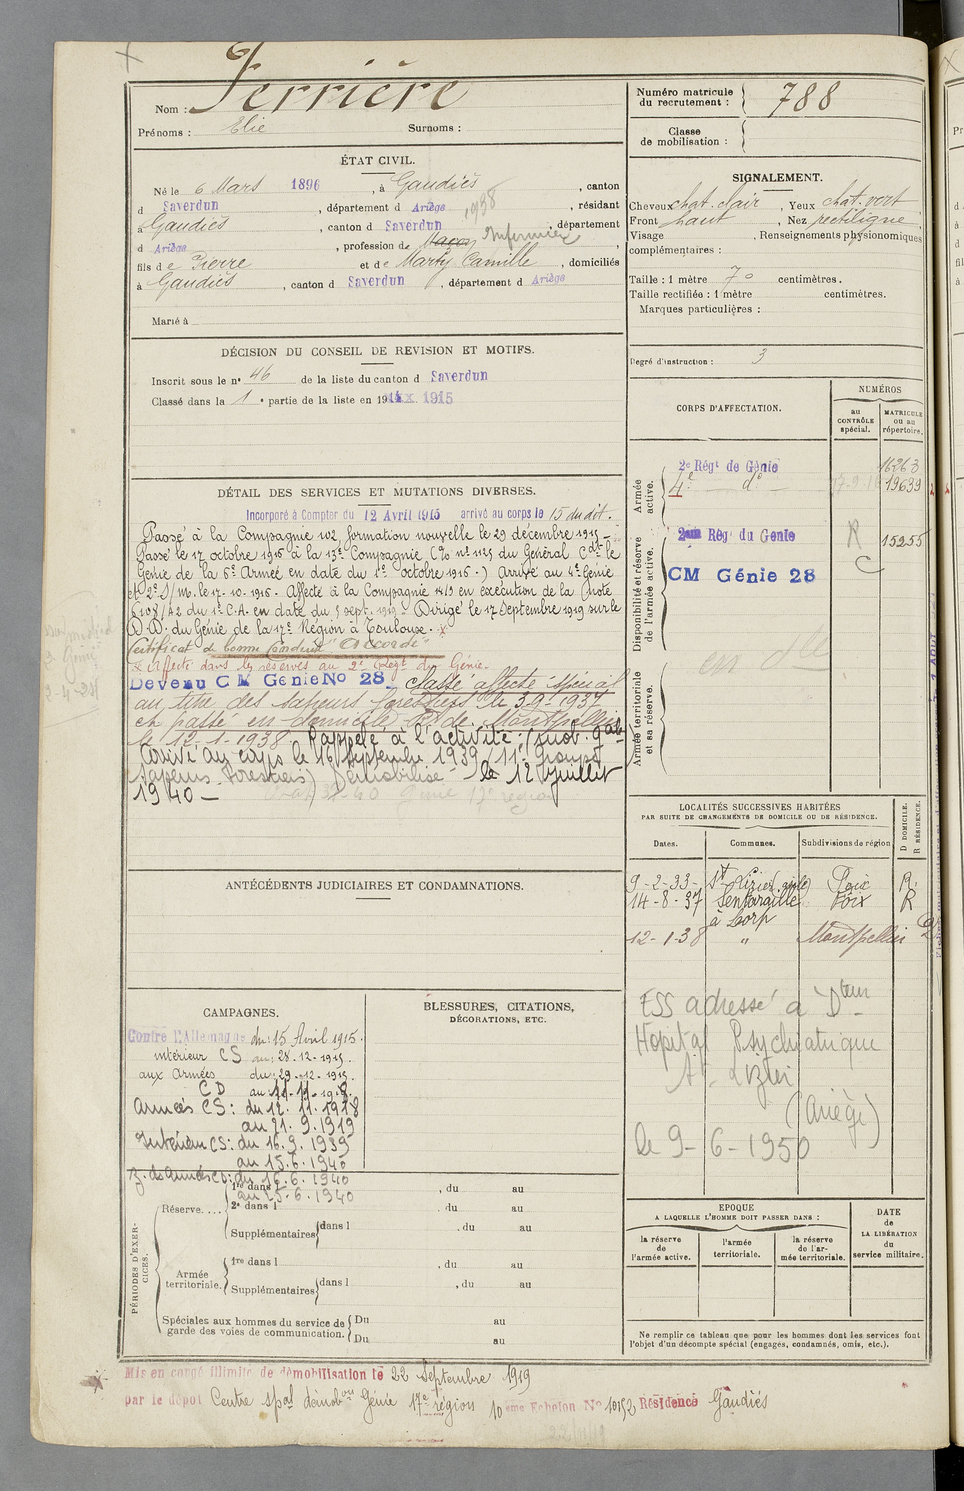 Nom : Ferrière
Prénoms : Elie Surnoms :
Numéro matricule du recrutement : 788
Classe de mobilisation :
ÉTAT CIVIL.
Né le 6 Mars 1896, à Gaudiès, canton
d Saverdun, département d Ariège, résidant 1938
à Gaudiès, canton d Saverdun, département
d Ariège, profession de Maçon Infirmier
fils de Pierre et de Marty Camille, domiciliés
à Gaudiès, canton d Saverdun, département d Ariège
Marié à
SIGNALEMENT.
Cheveux chat. clair, Yeux chat. vert
Front haut, Nez rectiligne
Visage , Renseignements physionomiques
complémentaires :
Taille : 1 mètre 70 centimètres.
Taille rectifiée : 1 mètre centimètres.
Marques particulières :
Degré d'instruction : 3
DÉCISION DU CONSEIL DE REVISION ET MOTIFS.
Inscrit sous le n° 46 de la liste du canton d Saverdun
Classé dans la 1e partie de la liste en 1915
DÉTAIL DES SERVICES ET MUTATIONS DIVERSES.
Incorporé à Compter du 12 Avril 1915 arrivé au corps le 15 du dit.
Passé à la Compagnie 102 formation nouvelle le 29 décembre 1915 –
Passé le 17 octobre 1916 à la 13e Compagnie C/o n° 1125 du Général Cdt le
Génie de la 6e Armée en date du 1er octobre 1916.) Arrivé au 4e Génie
et 2e S/M. le 17-10-1916. Affecté à la Compagnie 14/13 en exécution de la Note
6108/A2 du 1er C.A. en date du 5 sept. 1919. Dirigé le 17 Septembre 1919 sur le
D.D. du Génie de la 17e Région à Toulouse.
Certificat de bonne conduite "accordé"
x affecté dans les réserves au 2e Régt du Génie.
Devenu CM Génie No 28. Classé affecté spécial
au titre des sapeurs forestiers le 3-9-1937
et passé en domicile R de Montpellier
le 12-1-1938. Rappelé à l'activité (mob. gale)
Arrivé au corps le 16 septembre 1939 (11e Groupe
sapeurs forestiers) Démobilisé le 12 juillet
1940 –
Génie 17e région
CORPS D'AFFECTATION.
NUMÉROS
au CONTRÔLE spécial.
MATRICULE ou au répertoire.
Armée active.
2e Régt de Génie 16263
4e do 19639
Disponibilité et réserve de l'armée active.
2e Régt du Génie R 15255
CM Génie 28 C
Armée territoriale et sa réserve.
LOCALITÉS SUCCESSIVES HABITÉES
PAR SUITE DE CHANGEMENTS DE DOMICILE OU DE RÉSIDENCE.
Dates. Communes. Subdivisions de région D DOMICILE. R RÉSIDENCE.
9-2-33- St Lizier Foix R.
14-8-37 Sentaraille Foix R
à Lorp
12-1-38 " Montpellier D
ESS adressé à Dteur
Hopital Psychiatrique
St Lizier
(Ariège)
le 9-6-1950
ANTÉCÉDENTS JUDICIAIRES ET CONDAMNATIONS.
CAMPAGNES.
Contre l'Allemagne du : 15 Avril 1915.
intérieur CS au : 28.12.1915.
aux armées du : 29-12-1915.
CD au 11-11-1918.
armées CS : du 12.11.1918
au 21.9.1919
Intérieur CS : du 16.9.1939
au 15.6.1940
Z. des armées CD : du 16.6.1940
au 25.6.1940
BLESSURES, CITATIONS,
DÉCORATIONS, ETC.
PÉRIODES D'EXERCICES.
Réserve....
1re dans l , du au
2e dans l , du au
Supplémentaires dans l , du au
Armée territoriale.
1re dans l , du au
Supplémentaires dans l , du au
Spéciales aux hommes du service de garde des voies de communication.
Du au
Du au
EPOQUE
A LAQUELLE L'HOMME DOIT PASSER DANS :
la réserve de l'armée active.
l'armée territoriale.
la réserve de l'armée territoriale.
DATE de LA LIBÉRATION du service militaire.
Ne remplir ce tableau que pour les hommes dont les services font
l'objet d'un décompte spécial (engagés, condamnés, omis, etc.).
Mis en congé illimité de démobilisation le 22 Septembre 1919
par le dépôt Centre spal démobon Génie 17e région 10ème Echelon No 10152 Résidence Gaudiès